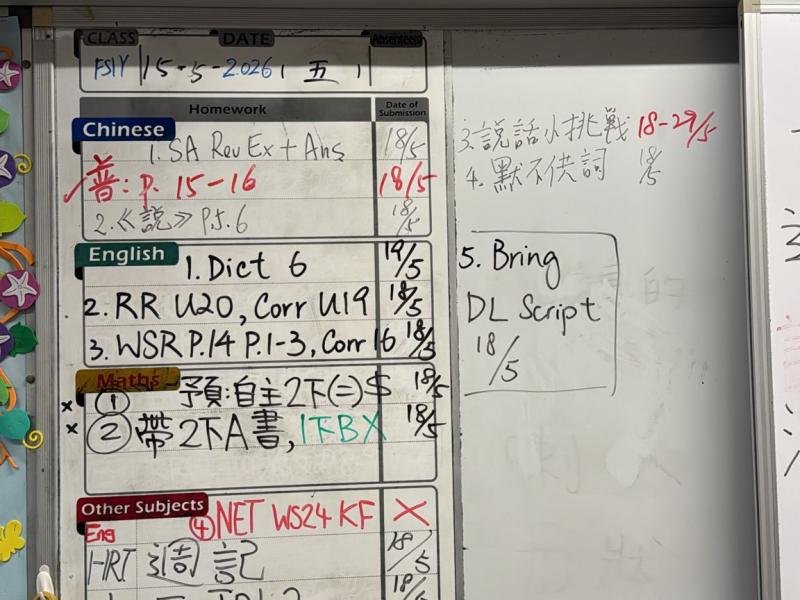 CLASS DATE Absentees
15-5-2026 (五)
Homework Date of Submission
Chinese
1. SA Rev Ex + Ans 18/5
普: P. 15-16 18/5
2.《說》P.5.6 18/5
3. 說話小挑戰 18-29/5
4. 默不供詞 18/5
English
1. Dict 6 19/5
2. RR U20, Corr U19 18/5
3. WSR P.14 P.1-3, Corr 16 18/5
5. Bring
DL Script
18/5
Maths
① 預:自主2下(二)$ 18/5
② 帶2下A書, 1下BX 18/5
Other Subjects
Eng ④ NET WS24 KF X
HRT 週記 18/5
18/